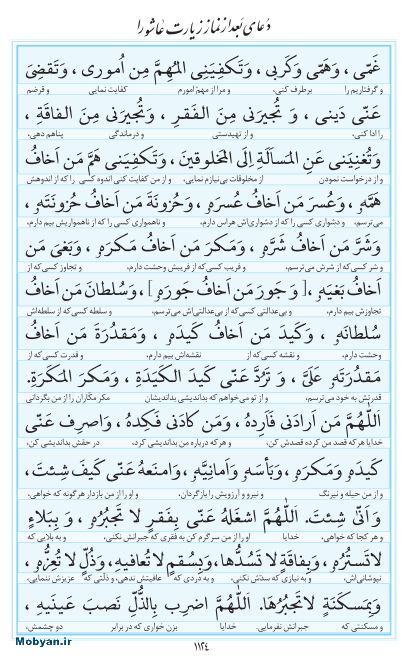 دعای بعد از نماز زیارت عاشورا
غَمّی ، وَهَمّی وَکَربی ، وَتَکفِیَنِی المُهِمَّ مِن اُموری ، وَتَقضِیَ
و گرفتاریم را برطرف کنی، و مرا از مهمّ امورم کفایت نمایی و قرضم
عَنّی دَینی ، وَ تُجیرَنی مِنَ الفَقرِ ، وَتُجیرَنی مِنَ الفاقَةِ ،
را ادا کنی، و از تهیدستی و درماندگی پناهم دهی،
وَتُغنِیَنی عَنِ المَسأَلَةِ اِلَی المَخلوقینَ ، وَتَکفِیَنی هَمَّ مَن اَخافُ
و از درخواست نمودن از مخلوقات بی‌نیازم نمایی، و از من کفایت کنی اندوه کسی را که از اندوهش
هَمَّهُ ، وَعُسرَ مَن اَخافُ عُسرَهُ ، وَحُزونَةَ مَن اَخافُ حُزونَتَهُ ،
می‌ترسم، و دشواری کسی را که از دشواری‌اش هراس دارم، و ناهمواری کسی را که از ناهمواریش بیم دارم،
وَشَرَّ مَن اَخافُ شَرَّهُ ، وَمَکرَ مَن اَخافُ مَکرَهُ ، وَبَغیَ مَن
و شر کسی که از شرش می‌ترسم، و فریب کسی که از فریبش وحشت دارم، و تجاوز کسی که از
اَخافُ بَغیَهُ ، [ وَ جَورَ مَن اَخافُ جَورَهُ ] ، وَسُلطانَ مَن اَخافُ
تجاوزش بیم دارم، و بی‌عدالتی کسی که از بی‌عدالتی‌اش می‌ترسم، و سلطه کسی که از سلطه‌اش
سُلطانَهُ ، وَکَیدَ مَن اَخافُ کَیدَهُ ، وَمَقدُرَةَ مَن اَخافُ
وحشت دارم، و نقشه کسی که از نقشه‌اش بیم دارم، و قدرت کسی که از
مَقدُرَتَهُ عَلَیَّ ، وَ تَرُدَّ عَنّی کَیدَ الکَیَدَةِ ، وَمَکرَ المَکَرَةِ.
قدرتش به خود می‌ترسم، و از تو می‌خواهم که بداندیشی بداندیشان و مکر مکاران را از من بگردانی
اَللّٰهُمَّ مَن اَرادَنی فَاَرِدهُ ، وَمَن کادَنی فَکِدهُ ، وَاصرِف عَنّی
خدایا هر که قصد من کرده قصدش کن، و هر که درباره من بداندیشی کرد، در حقش بداندیشی کن،
کَیدَهُ وَمَکرَهُ ، وَبَأسَهُ وَاَمانِیَّهُ ، وَامنَعهُ عَنّی کَیفَ شِئتَ،
و از من حیله و نیرنگ و نیرو و آرزویش را بازگردان، و او را از من بازدار هرگونه که خواهی،
وَ اَنّی شِئتَ. اَللّٰهُمَّ اشغَلهُ عَنّی بِفَقرٍ لا تَجبُرُهُ ، وَ بِبَلاءٍ
و هر کجا که خواهی، خدایا او را از من سرگرم کن به فقری که جبرانش نکنی، و به بلایی که
لاتَستُرُهُ ، وَبِفاقَةٍ لا تَسُدُّها، وَبِسُقمٍ لاتُعافیهِ، وَذُلٍّ لا تُعِزُّهُ ،
نپوشانی‌اش، و به نیازی که سدّش نکنی، و به دردی که عافیتش ندهی، و ذلّتی که عزیزش ننمایی،
وَبِمَسکَنَةٍ لاتَجبُرُها. اَللّٰهُمَّ اضرِب بِالذُّلِّ نَصبَ عَینَیهِ ،
و مسکنتی که جبرانش نفرمایی. خدایا بزن خواری که در برابر دو چشمش،
۱۱۲۴
Mobyan.ir